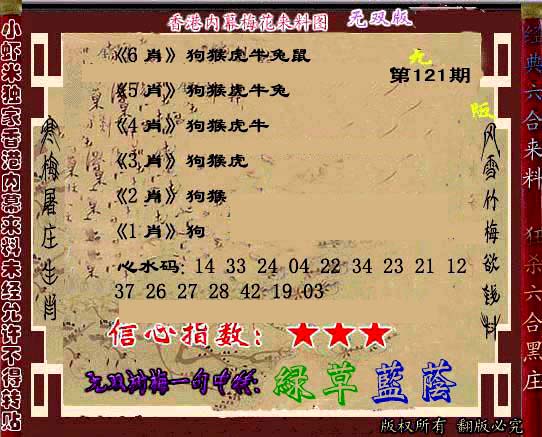 香港内幕梅花来料图 无双版
《6 肖》狗猴虎牛兔鼠
九
第121期
《5 肖》狗猴虎牛兔
《4 肖》狗猴虎牛
《3 肖》狗猴虎
《2 肖》狗猴
《1 肖》狗
心水码: 14 33 24 04 22 34 23 21 12
37 26 27 28 42 19 03
信心指数: ★★★
綠草藍蔭
版权所有 翻版必究
小虾米独家香港内幕来料未经允许不得转贴
寒梅屠庄生肖
风雪竹梅欲钱料
经典六合来料 狂杀六合黑庄